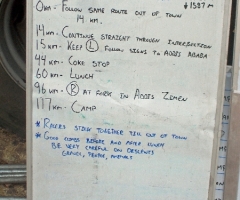 0km - Follow same route out of town
14 km.
↑1587 m
14km - Continue straight through intersection
15km - Keep Ⓛ Follow signs to Addis Ababa
44km - Coke Stop
60km - Lunch
96km - Ⓡ at fork in Addis Zemen
117km - Camp
* Riders stick together till out of town
* Good climbs before and after lunch
Be very careful on descents
Gravel, traffic, animals